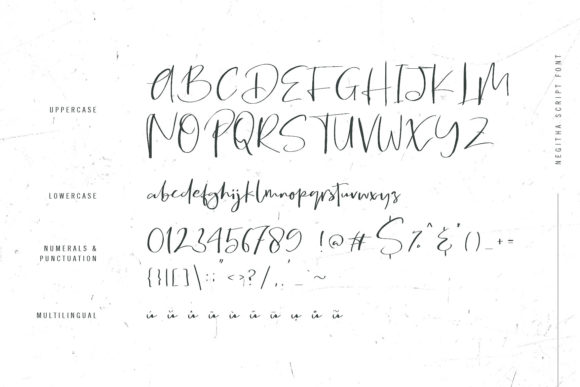 UPPERCASE
ABCDEFGHIJKLM
NOPQRSTUVWXYZ
LOWERCASE
abcdefghijklmnopqrstuvwxys
NUMERALS &
PUNCTUATION
0123456789 !@#$%^&*()_-+=
{}|[]\:;"<>?/,.'_~
MULTILINGUAL
NEGITHA SCRIPT FONT